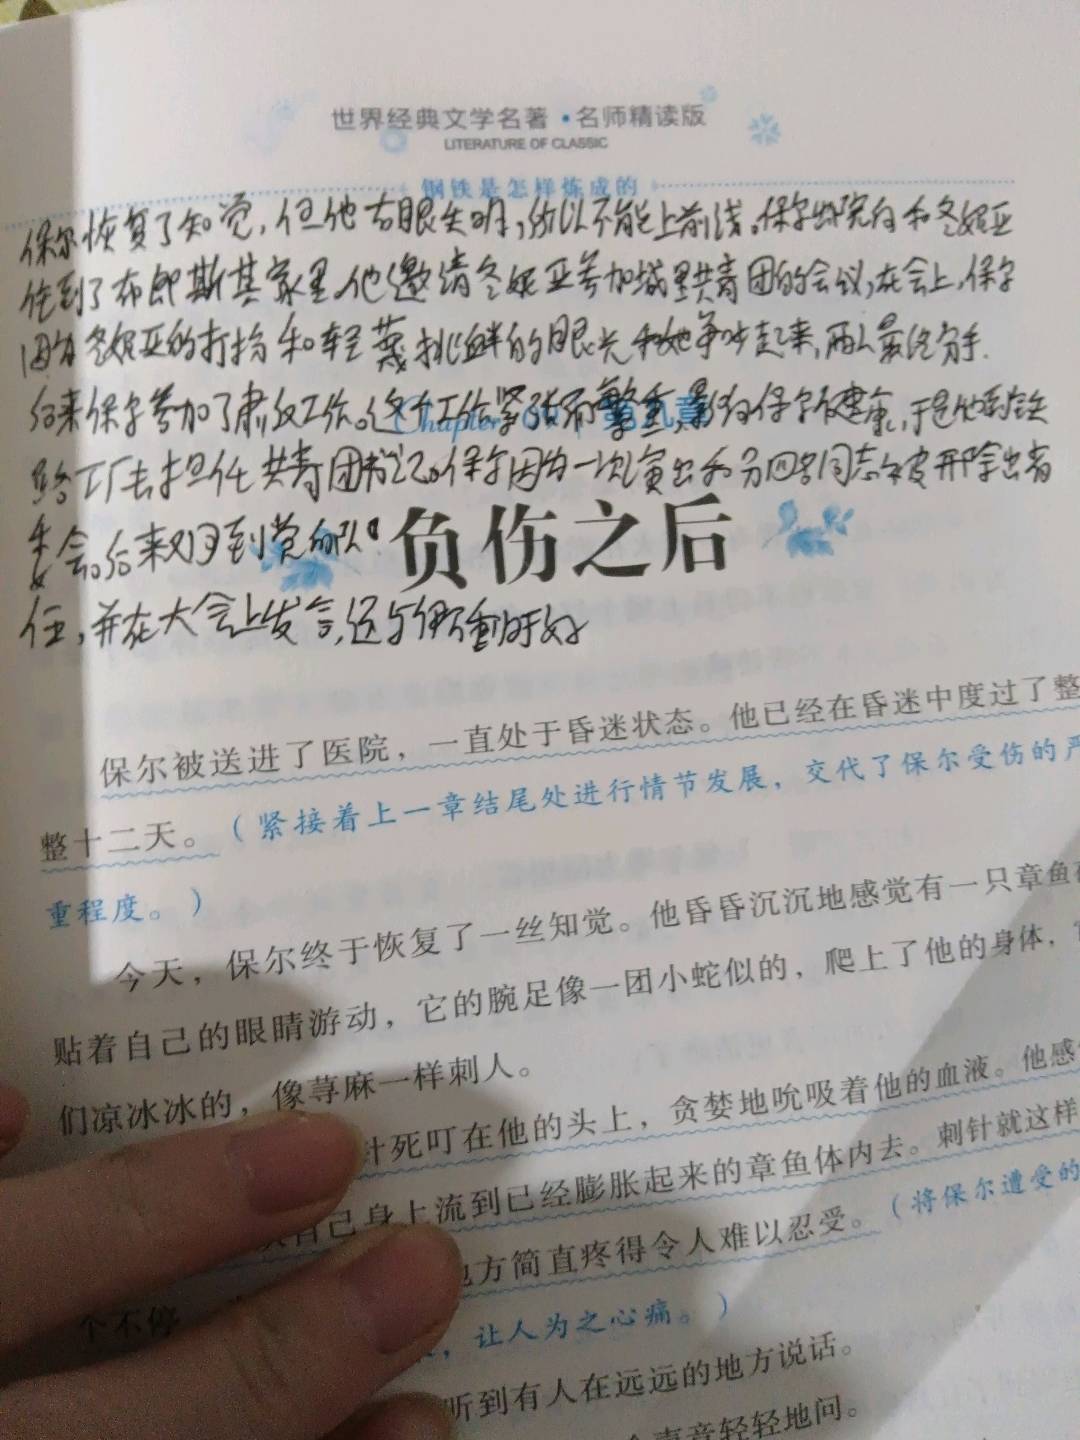 世界经典文学名著·名师精读版
LITERATURE OF CLASSIC
钢铁是怎样炼成的
保尔恢复了知觉，但他右眼失明，所以不能上前线。保尔出院后和冬妮亚
住到了布郎斯其家里。他邀请冬妮亚参加城里共青团的会议，在会上，保尔
因为冬妮亚的打扮和轻蔑挑衅的眼光和她争吵起来，两人最终分手.
后来保尔参加了肃反工作。这个工作紧张而繁重，影响保尔健康，于是他到铁
路工厂去担任共青团书记。保尔因为一次演出和另四名同志被开除出省
委会。后来又回到党的队
Chapter 第九章
负伤之后
任，并在大会上发言，还与
保尔被送进了医院，一直处于昏迷状态。他已经在昏迷中度过了整
整十二天。（紧接着上一章结尾处进行情节发展，交代了保尔受伤的严
重程度。）
今天，保尔终于恢复了一丝知觉。他昏昏沉沉地感觉有一只章鱼
贴着自己的眼睛游动，它的腕足像一团小蛇似的，爬上了他的身体，
们凉冰冰的，像荨麻一样刺人。
针死叮在他的头上，贪婪地吮吸着他的血液。他感
自己身上流到已经膨胀起来的章鱼体内去。刺针就这样
个不停 地方简直疼得令人难以忍受。（将保尔遭受的
，让人为之心痛。）
听到有人在远远的地方说话。
声音轻轻地问。